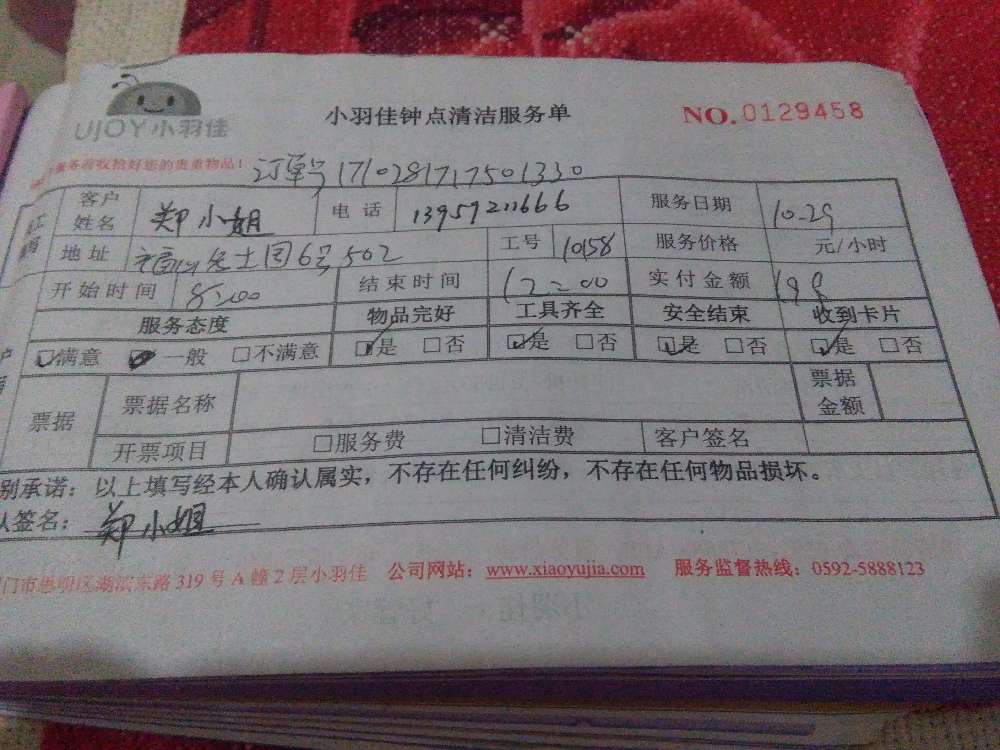 UJOY小羽佳
小羽佳钟点清洁服务单
NO.0129458
服务前收拾好您的贵重物品！
订单号1710281717501330
客户姓名 郑小姐 电话 13959211666 服务日期 10-29
地址 园6号502 工号 10158 服务价格 元/小时
开始时间 8:00 结束时间 12:00 实付金额 198
服务态度 物品完好 工具齐全 安全结束 收到卡片
满意 一般 不满意 是 否 是 否 是 否 是 否
票据 票据名称 票据金额
开票项目 服务费 清洁费 客户签名
别承诺：以上填写经本人确认属实，不存在任何纠纷，不存在任何物品损坏。
签名：郑小姐
门市思明区湖滨东路319号A幢2层小羽佳 公司网站：www.xiaoyujia.com 服务监督热线：0592-5888123